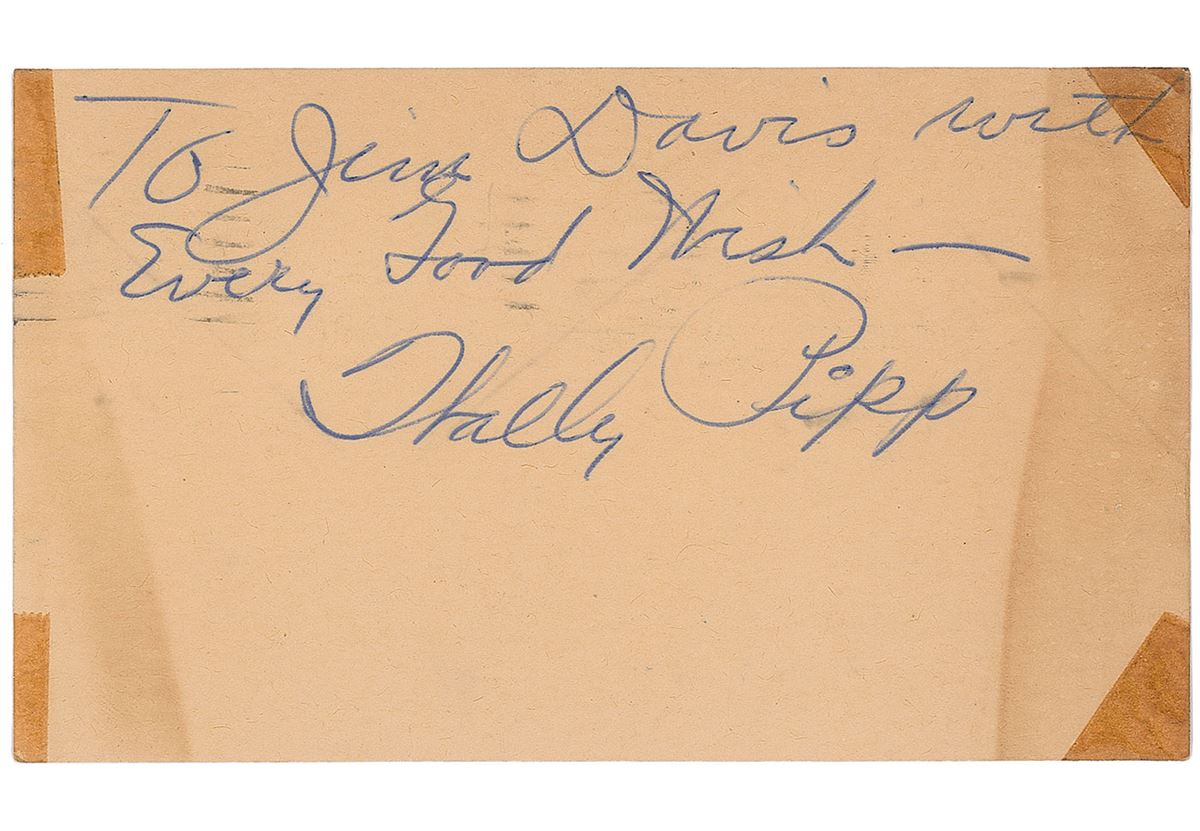 To Jim Davis with
Every Good Wish —
Wally Pipp